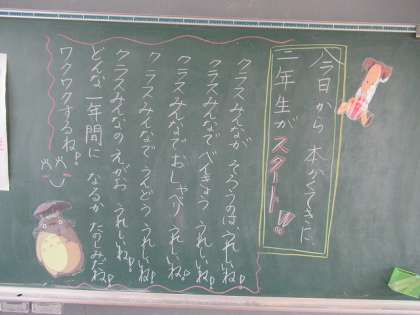 今日から 本かくてきに、
二年生が スタート!!
クラスみんなが そろうのは、うれしいね!
クラスみんなで べんきょう うれしいね!
クラスみんなで おしゃべり うれしいね!
クラスみんなで うんどう うれしいね!
クラスみんなの えがお うれしいね!
どんな 一年間に なるか たのしみだね!
ワクワクするね!